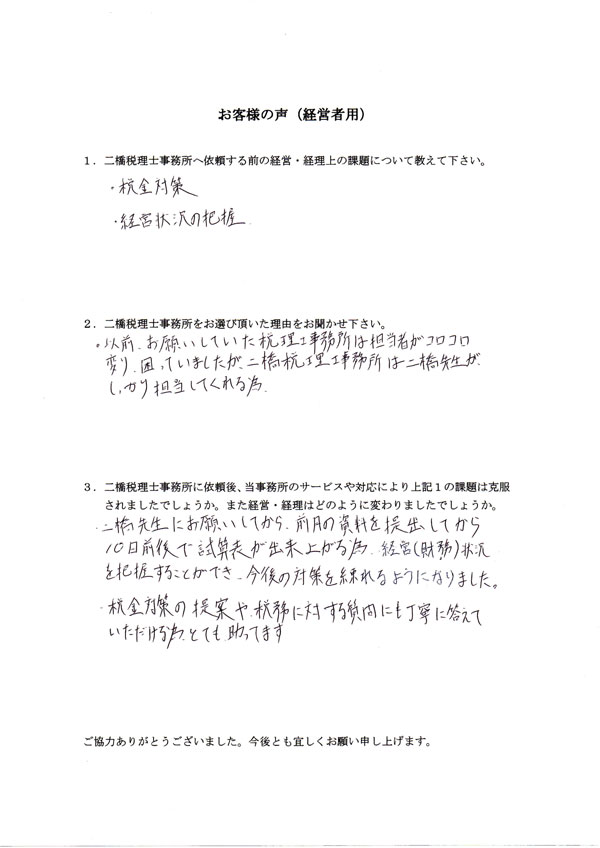 お客様の声（経営者用）
１．二橋税理士事務所へ依頼する前の経営・経理上の課題について教えて下さい。
・税金対策
・経営状況の把握
２．二橋税理士事務所をお選び頂いた理由をお聞かせ下さい。
・以前、お願いしていた税理士事務所は担当者がコロコロ
変り、困っていましたが、二橋税理士事務所は二橋先生が、
しっかり担当してくれる為、
３．二橋税理士事務所に依頼後、当事務所のサービスや対応により上記１の課題は克服
されましたでしょうか。また経営・経理はどのように変わりましたでしょうか。
・二橋先生にお願いしてから、前月の資料を提出してから
１０日前後で試算表が出来上がる為、経営（財務）状況
を把握することができ、今後の対策を練れるようになりました。
・税金対策の提案や、税務に対する質問にも丁寧に答えて
いただける為、とても助ってます
ご協力ありがとうございました。今後とも宜しくお願い申し上げます。